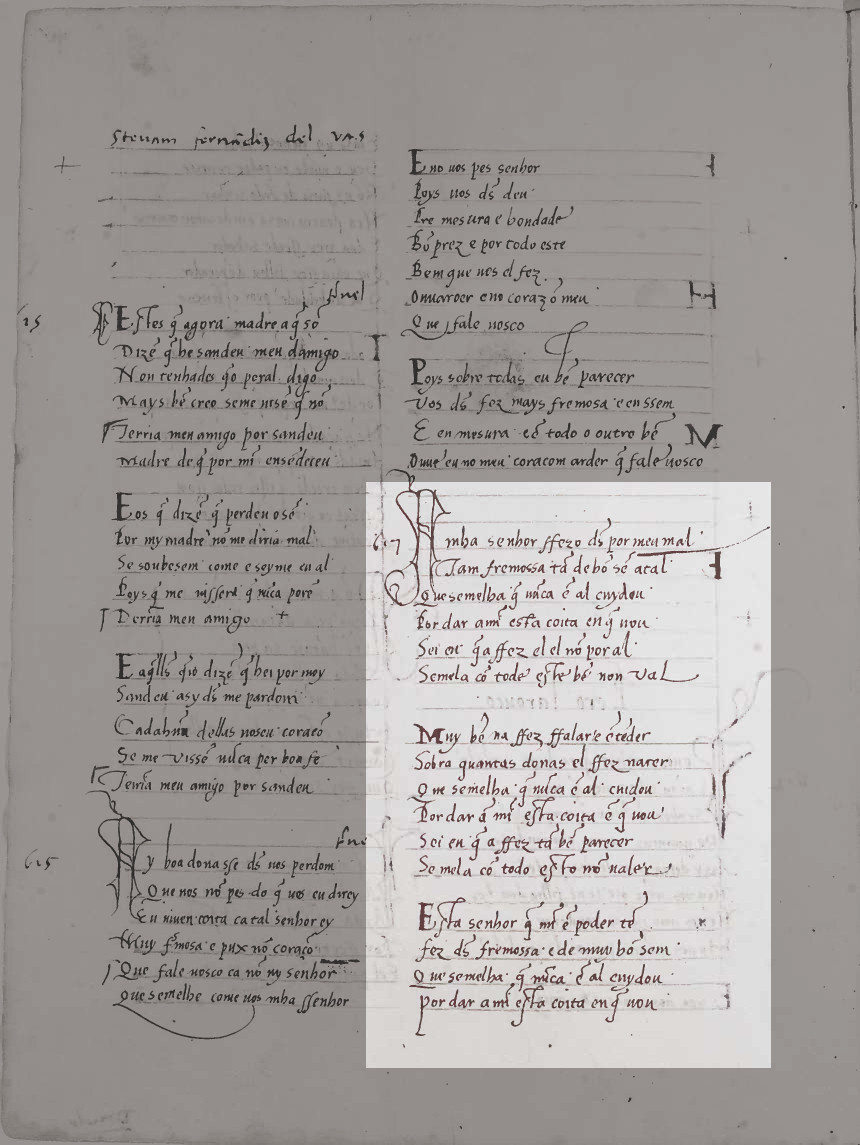 Steuam fernãdiz del vas
fnel
615
Estes q̃ agora madre aq̃ sõ
Dizẽ q̃ he sandeu meu damigo
Non tenhades q̃o poral digo
Mays bẽ creo seme uise q̃ nõ
Terria meu amigo por sandeu
Madre de q̃ por mĩ ensãdeceu
Eos q̃ dizẽ q̃ perdeu o sẽ
Por my madre nõ me diria mal
Se soubesem come e soyme eu al
Poys q̃ me uissẽ q̃ nũca porẽ
Terria meu amigo +
Eaq̃lls q̃o dizẽ q̃ hei por mey
Sandeu asy ds̃ me pardom
Cadahuã dellas noseu coraçõ
Se me vissẽ nũca per boa fe
Terria meu amigo por sandeu
fne
615
My boa dona sse ds̃ uos perdom
Que nos nõ pes do q̃ uos eu direy
Eu viuen coita ca tal senhor ey
Muy fmosa e pux nõ coraçõ
Que fale uosco ca nõ uy senhor
Que semelhe come uos mha ssenhor
E no uos pes senhor
Poys uos ds̃ deu
Pre mesura e bondade
Bõ prez e por todo este
Bem que uos el fez
Omuaroer eno corazõ meu
Que fale uosco
Poys sobre todas eu bẽ parecer
Vos ds̃ fez mays fremosa e en ssem
E en mesura cõ todo o outro bẽ
Ouue eu no meu coracom arder q̃ fale uosco
617
Mmha senhor ffezo ds̃ por meu mal
Tam fremossa tã de bõ sẽ atal
Que semelha q̃ nũca ẽ al cuydou
Por dar amĩ esta coita en q̃ uou
Sei eu q̃ a ffez el el nõ por al
Semela cõ tode este bẽ non val
Muy bẽ na ffez ffalar e ẽtẽder
Sobra quantas donas el ffez nacer
Que semelha q̃ nũca ẽ al cuidou
Por dar a mĩ esta coita ẽ q̃ uou
Sei eu q̃ a ffez tã bẽ parecer
Se mela cõ todo esto nõ ualer
Esta senhor q̃ mĩ ẽ poder tẽ
fez ds̃ fremossa e de muy bõ sem
Que semelha q̃ nũca ẽ al cuydou
por dar a mĩ esta coita en q̃ uou